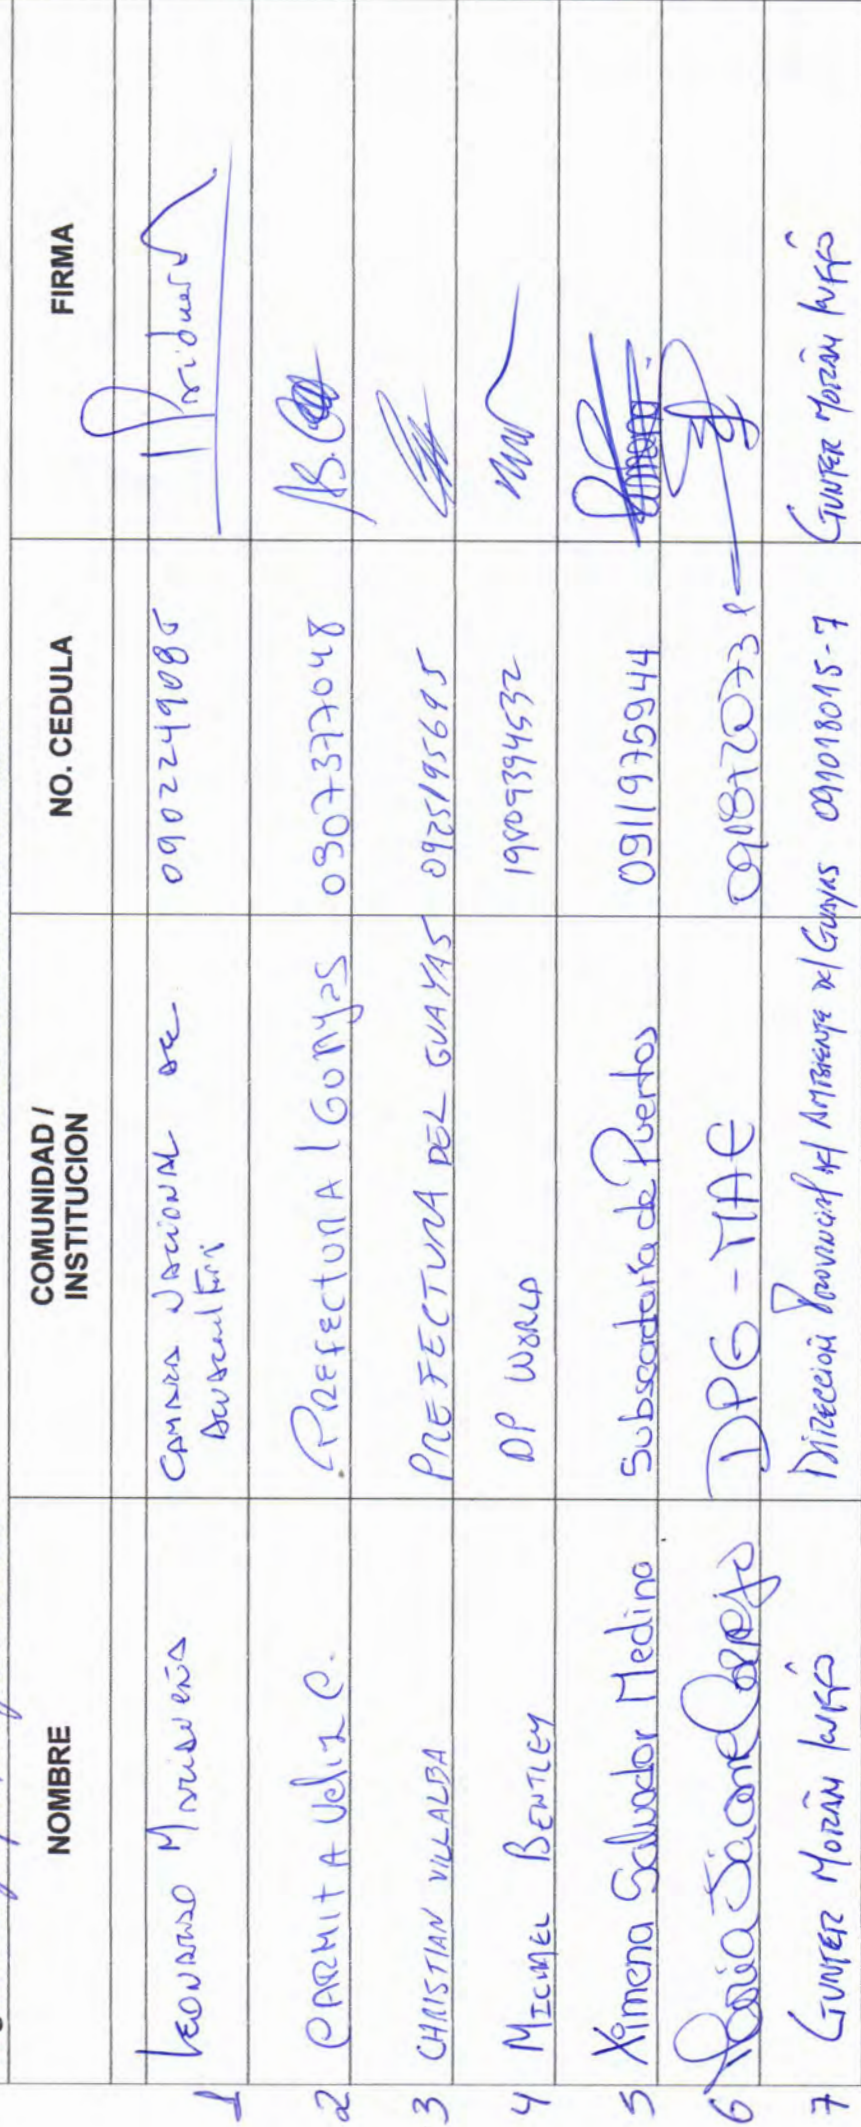 NOMBRE
COMUNIDAD /
INSTITUCION
NO. CEDULA
FIRMA
1 LEONARDO CAMARA NACIONAL DE 0902249085
2 CARMITA Veliz C. PREFECTURA 0907377048
3 CHRISTIAN VILLALBA PREFECTURA DEL GUAYAS 0925195695
4 MICHAEL BENTLEY DP WORLD
5 Ximena Salvador Medina Subsecretaría de Puertos 0911975944 Ximena
6 DPG - MAE
7 GUNTER MORÁN Dirección Provincial del AMBIENTE del GUAYAS 091018015-7 GUNTER MORÁN